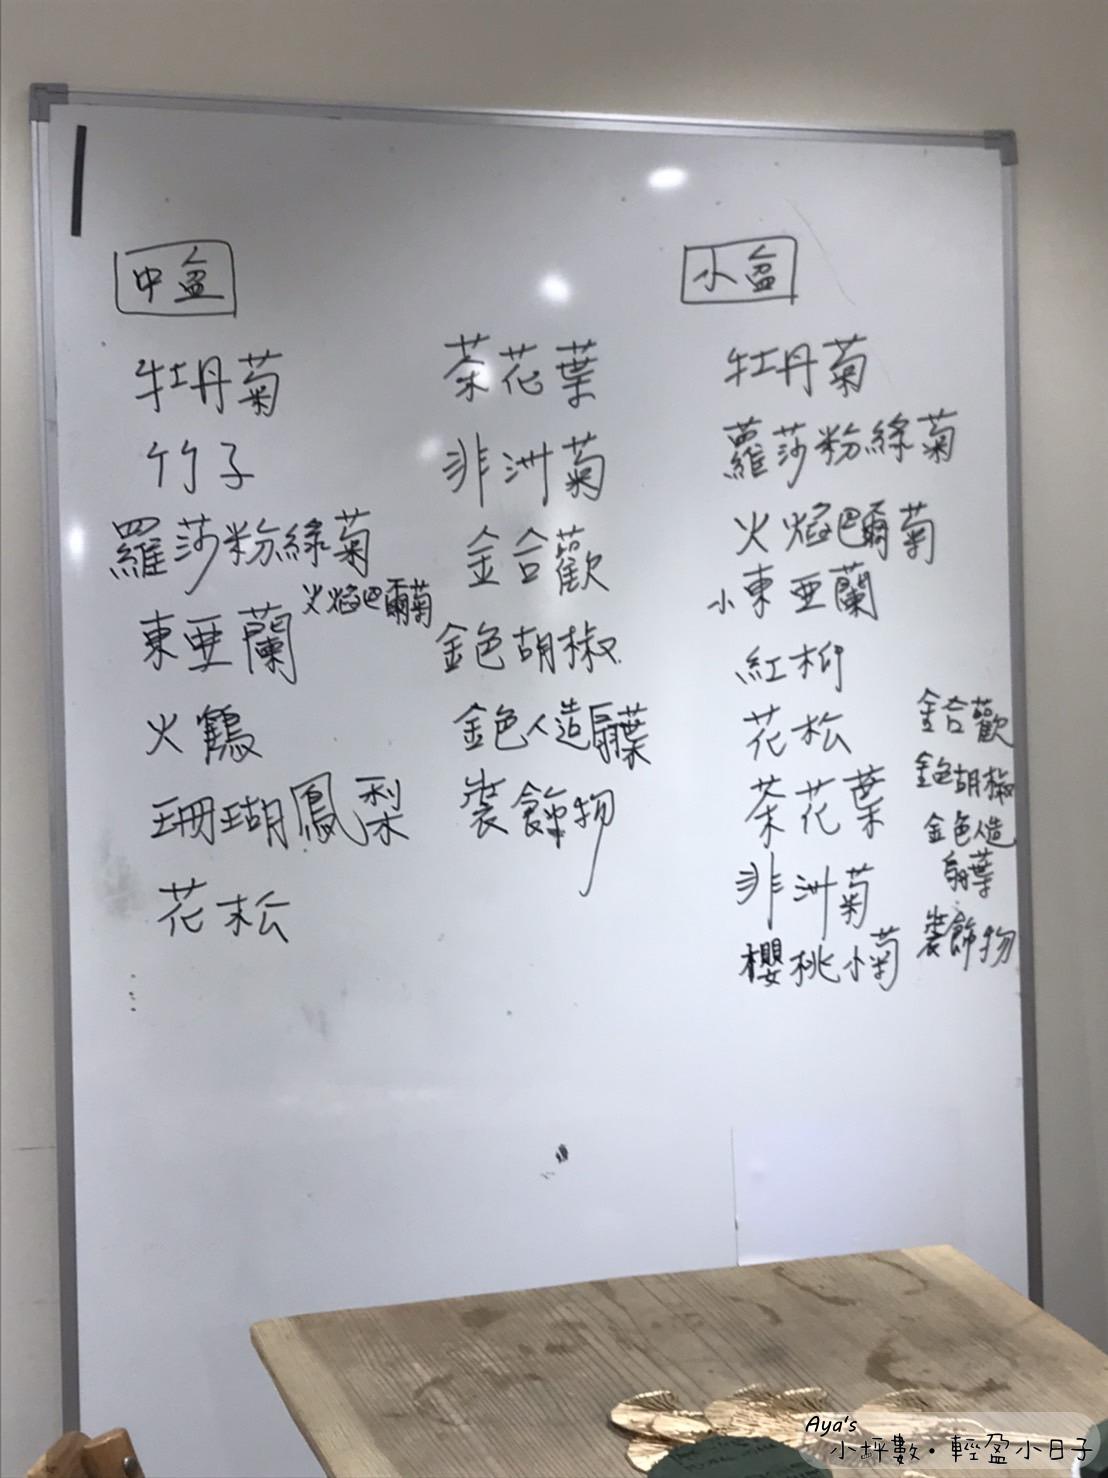 中盆
牡丹菊
竹子
羅莎粉綠菊
火焰巴爾菊
東亜蘭
火鶴
珊瑚鳳梨
花松
茶花葉
非洲菊
金合歡
金色胡椒
金色人造扇葉
裝飾物
小盆
牡丹菊
蘿莎粉綠菊
火焰巴爾菊
小東亜蘭
紅柳
花松
茶花葉
非洲菊
櫻桃小菊
金合歡
金色胡椒
金色人造
扇葉
裝飾物
Aya's
小坪數·輕盈小日子